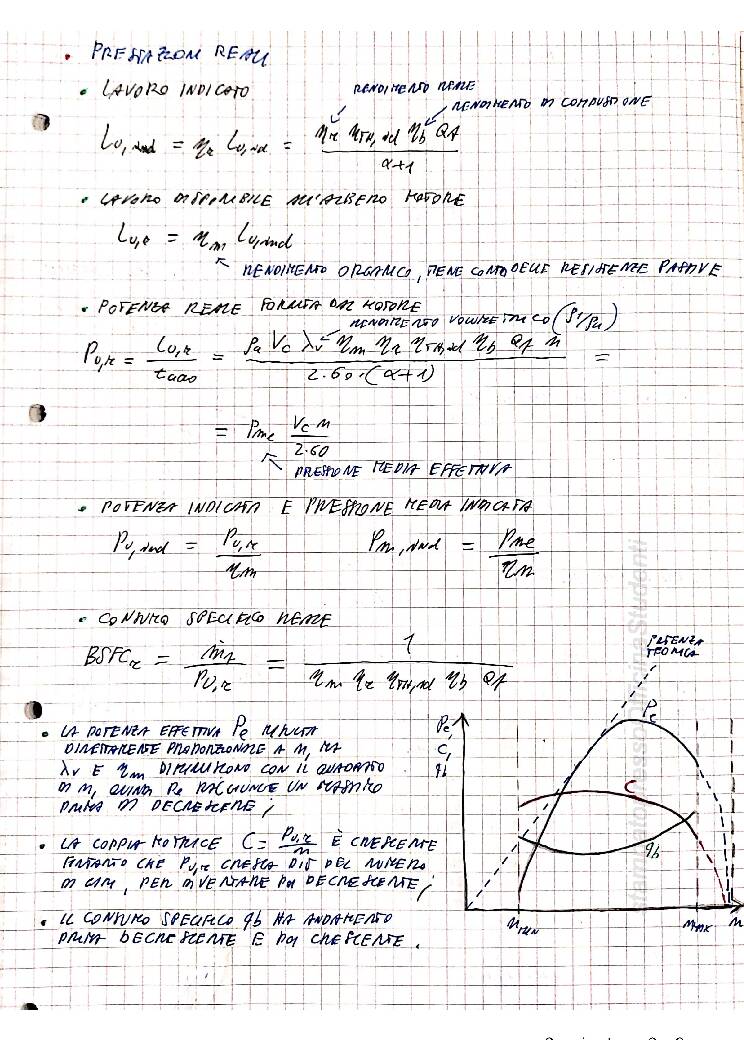 • PRESTAZIONI REALI
• LAVORO INDICATO
RENDIMENTO REALE
RENDIMENTO DI COMBUSTIONE
Lu,ind = ηr Lu,id = ηr ηTH,id ηb Qf / (α+1)
• LAVORO DISPONIBILE ALL'ALBERO MOTORE
Lu,r = ηm Lu,ind
RENDIMENTO ORGANICO, TIENE CONTO DELLE RESISTENZE PASSIVE
• POTENZA REALE FORNITA DAL MOTORE
RENDIMENTO VOLUMETRICO (ρ1/ρa)
Pu,r = Lu,r / tciclo = ρa Vc λv ηm ηr ηTH,id ηb Qf n / 2·60·(α+1) =
= Pme Vc n / 2·60
PRESSIONE MEDIA EFFETTIVA
• POTENZA INDICATA E PRESSIONE MEDIA INDICATA
Pu,ind = Pu,r / ηm    Pm,ind = Pme / ηm
• CONSUMO SPECIFICO REALE
BSFCr = ṁf / Pu,r = 1 / ηm ηr ηTH,id ηb Qf
POTENZA
TEORICA
• LA POTENZA EFFETTIVA Pe RISULTA
DIRETTAMENTE PROPORZIONALE A n, MA
λv E ηm DIMINUISCONO CON IL QUADRATO
DI n, QUINDI Pe RAGGIUNGE UN MASSIMO
PRIMA DI DECRESCERE;
• LA COPPIA MOTRICE C = Pu,r / n È CRESCENTE
FINTANTO CHE Pu,r CRESCA PIÙ DEL NUMERO
DI GIRI, PER DIVENTARE POI DECRESCENTE;
• IL CONSUMO SPECIFICO qb HA ANDAMENTO
PRIMA DECRESCENTE E POI CRESCENTE.
Pe,
C,
qb
Pe
C
qb
nMIN
nMAX
n